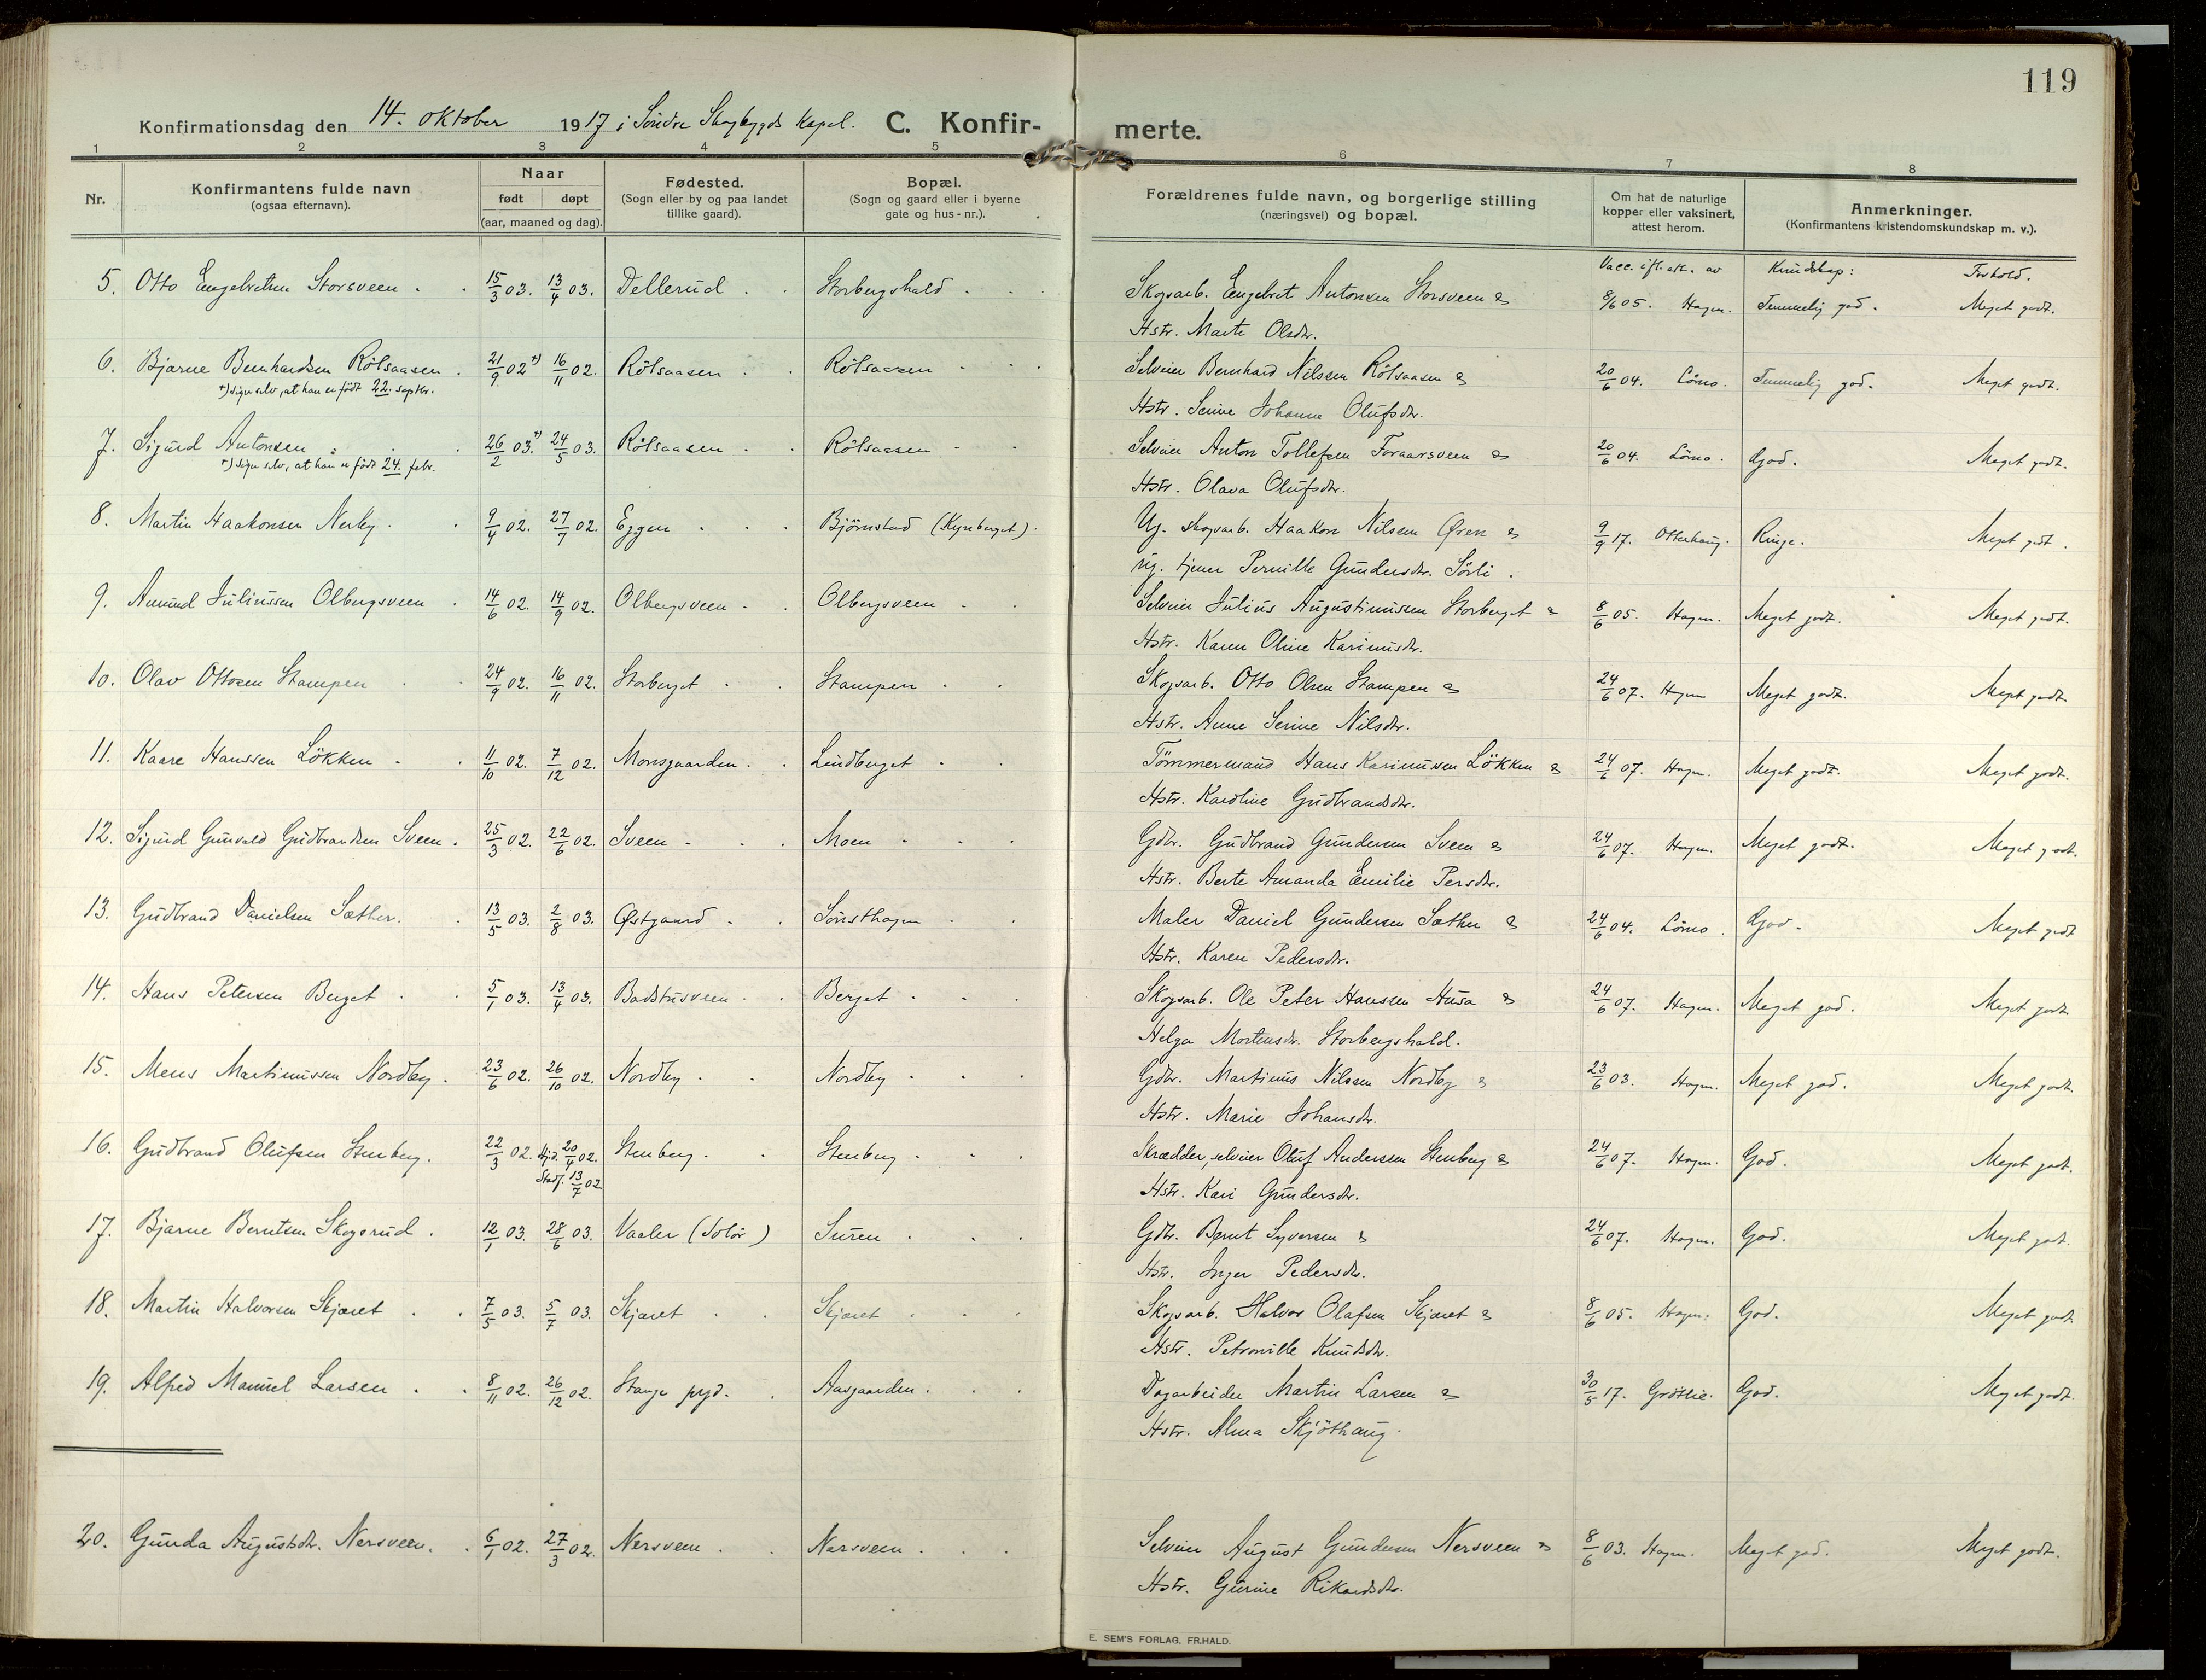 119
Konfirmationsdag den 14. oktober 1917 i Söndre Skogbygds Kapel. C. Konfir-merte.
1 2 3 4 5 6 7 8
Nr. Konfirmantens fulde navn (ogsaa efternavn). Naar født døpt (aar, maaned og dag). Fødested. (Sogn eller by og paa landet tillike gaard). Bopæl. (Sogn og gaard eller i byerne gate og hus-nr.). Forældrenes fulde navn, og borgerlige stilling (næringsvei) og bopæl. Om hat de naturlige kopper eller vaksinert, attest herom. Anmerkninger. (Konfirmantens kristendomskundskap m. v.).
Vacc. ifl. att. av Kundskap: Forhold.
5. Otto Engelretsen Storsveen. 15/3 03. 13/4 03. Dellerud Storbergshald Skogsarb. Engebret Antonsen Storsveen & 8/6 05. Hagen. Temmelig god. Meget godt.
Hstr. Marte Olsdtr.
6. Bjarne Bernhardsen Rölsaasen. 21/9 02 +) 16/11 02. Rölsaasen Rölsaasen Selveier Bernhard Nilssen Rölsaasen & 20/6 04. Lömo. Temmelig god. Meget godt.
+) siger selv, at han er födt 22. septbr. Hstr. Serine Johanne Olufsdtr.
7. Sigurd Antonsen 26/2 03. +) 24/5 03. Rölsaasen Rölsaasen Selveier Anton Tollefsen Foraarsveen & 20/6 04. Lömo. God. Meget godt.
+) siger selv, at han er födt 24. febr. Hstr. Olava Olufsdtr.
8. Martin Haakonsen Nerby. 9/4 02. 27/7 02. Eggen Björnstad (Kynberget). Ug. skogsarb. Haakon Nilsen Øren & 9/9 17. Otterhaug. Ringe. Meget godt.
ug. tjener Pernille Gundersdtr. Sörli.
9. Amund Juliussen Olbergsveen 14/6 02. 14/9 02. Olbergsveen Olbergsveen Selveier Julius Augustinussen Storberget & 8/6 05. Hagen. Meget godt. Meget godt.
Hstr. Karen Oline Karinusdtr.
10. Olav Ottosen Stampen 24/9 02. 16/11 02. Storberget Stampen Skogsarb. Otto Olsen Stampen & 24/6 07. Hagen Meget godt. Meget godt.
Hstr. Anne Serine Nilsdtr.
11. Kaare Hanssen Lökken 11/10 02. 7/12 02. Monsgaarden Lindberget Tömmermand Hans Karinussen Lökken & 24/6 07. Hagen. Meget godt. Meget godt.
Hstr. Karoline Gudbrandsdtr.
12. Sigurd Gunvald Gudbrandsen Sveen. 25/3 02. 22/6 02. Sveen Moen Gdbr. Gudbrand Gundersen Sveen & 24/6 07. Hagen. Meget godt. Meget godt.
Hstr. Berte Amanda Emilie Persdtr.
13. Gudbrand Danielsen Sæther. 13/5 03. 2/8 03. Østgaard Sönsthagen Maler Daniel Gundersen Sæther & 24/6 04. Lömo. God. Meget godt
Hstr. Karen Pedersdtr.
14. Hans Petersen Berget 5/1 03. 13/4 03. Badstusveen Berget Skogsarb. Ole Peter Hanssen Husa & 24/6 07. Hagen. Meget god. Meget godt.
Helga Mortensdtr. Storbergshald.
15. Mens Martinussen Nordby. 23/6 02. 26/10 02. Nordby Nordby Gdbr. Martinus Nilssen Nordby & 23/6 03. Hagen. Meget god. Meget godt.
Hstr. Marie Johansdtr.
16. Gudbrand Olufsen Stenberg. 22/3 02. Hjd. 20/4 02. Stadf. 13/7 02. Stenberg Stenberg Skrædder, selveier Oluf Anderssen Stenberg & 24/6 07. Hagen. God. Meget godt.
Hstr. Kari Gundersdtr.
17. Bjarne Berntsen Skogsrud. 12/1 03. 28/6 03. Vaaler (Solör) Suren Gdbr. Bernt Syversen & 24/6 07. Hagen. God. Meget godt.
Hstr. Inger Pedersdtr.
18. Martin Halvorsen Skjæret 7/5 03. 5/7 03. Skjæret Skjæret Skogsarb. Halvor Olafsen Skjæret & 8/6 05. Hagen. God. Meget godt
Hstr. Petronille Knudsdtr.
19. Alfred Manuel Larsen 8/11 02. 26/12 02. Stange prgd. Aasgaarden Dagarbeider Martin Larsen & 30/5 17. Gröttie. God. Meget godt.
Hstr. Alma Skjöthaug.
20. Gunda Augustsdtr. Nersveen. 6/1 02. 27/3 02. Nersveen Nersveen Selveier August Gundersen Nersveen & 8/6 03. Hagen. Meget god. Meget godt.
Hstr. Gurine Rikardsdtr.
E. SEM'S FORLAG, FR.HALD.